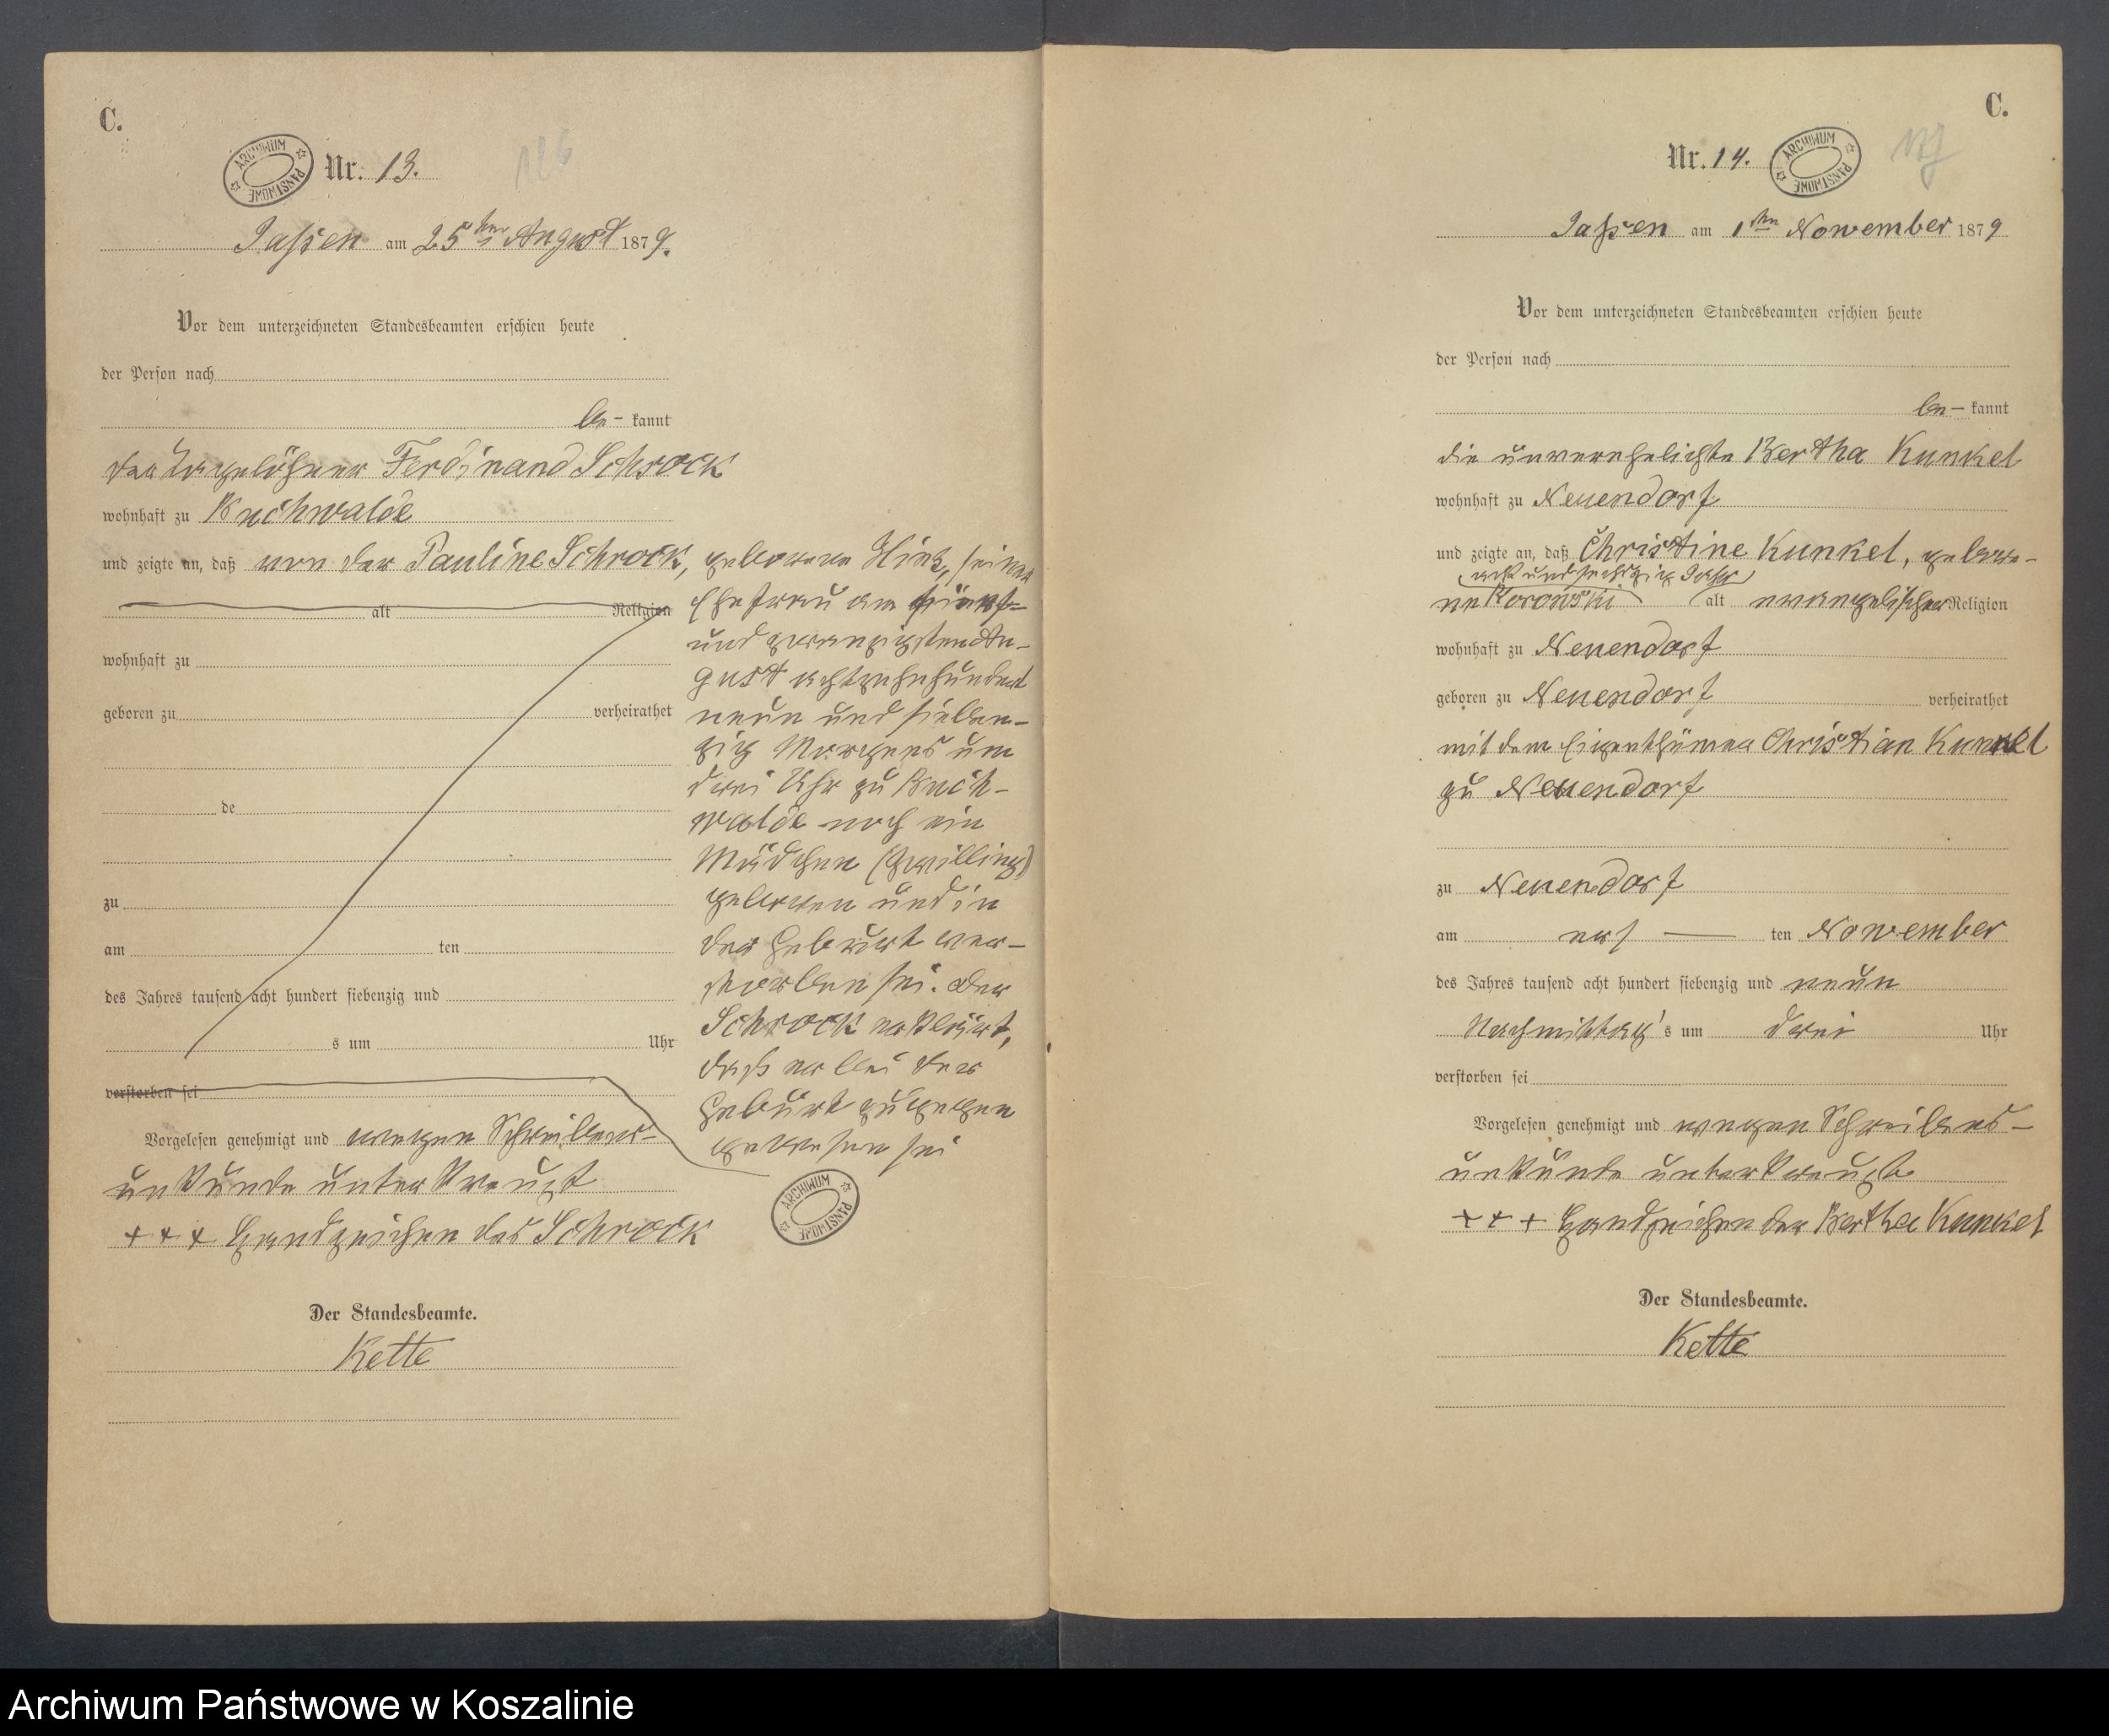 C.
ARCHIWUM PAŃSTWOWE
Nr. 13.
126
Jassen am 25ten August 1879.
Vor dem unterzeichneten Standesbeamten erschien heute
der Person nach
be- kannt
der Tagelöhner Ferdinand Schrock
wohnhaft zu Buchwalde
und zeigte an, daß von der Pauline Schrock, geborene Hintz, seiner
alt Religion Ehefrau am fünf-
und zwanzigsten Au-
wohnhaft zu
gust achtzehnhundert
geboren zu verheirathet neun und sieben-
zig Morgens um
drei Uhr zu Buch-
de
walde noch ein
Mädchen (Zwilling)
zu
geboren und in
am ten
der Geburt ver-
des Jahres tausend acht hundert siebenzig und
storben sei. Der
Schrock erklärt,
s um Uhr
daß er bei der
verstorben sei
Geburt zugegen
gewesen sei
Vorgelesen genehmigt und wegen Schreibens-
unkunde unterkreuzt
+++ Handzeichen des Schrock
ARCHIWUM PAŃSTWOWE
Der Standesbeamte.
Kette
C.
Nr. 14.
ARCHIWUM PAŃSTWOWE
Jassen am 1ten November 1879
Vor dem unterzeichneten Standesbeamten erschien heute
der Person nach
be- kannt
die unverehelichte Bertha Kunkel
wohnhaft zu Neuendorf
und zeigte an, daß Christine Kunkel, gebore-
acht und sechszig Jahr
ne Borowski alt evangelischer Religion
wohnhaft zu Neuendorf
geboren zu Neuendorf verheirathet
mit dem Eigenthümer Christian Kunkel
zu Neuendorf
zu Neuendorf
am ers ten November
des Jahres tausend acht hundert siebenzig und neun
Nachmittag's um drei Uhr
verstorben sei
Vorgelesen genehmigt und wegen Schreibens-
unkunde unterkreuzt
+++ Handzeichen der Bertha Kunkel
Der Standesbeamte.
Kette
Archiwum Państwowe w Koszalinie